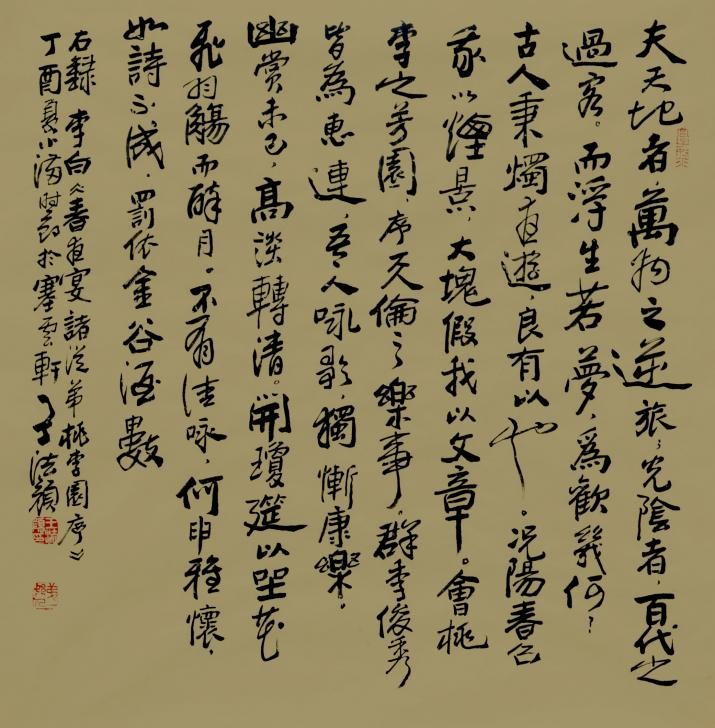 夫天地者，萬物之逆旅；光陰者，百代之
過客。而浮生若夢，爲歡幾何？
古人秉燭夜遊，良有以也。况陽春召
我以煙景，大塊假我以文章。會桃
李之芳園，序天倫之樂事。群季俊秀
皆為惠連，吾人咏歌，獨慚康樂。
幽賞未已，高淡轉清。開瓊筵以坐花
飛羽觴而醉月。不有佳咏，何申雅懷，
如詩不成，罰依金谷酒數
右錄李白《春夜宴諸從弟桃李園序》
丁酉夏小滿时節於塞雲軒